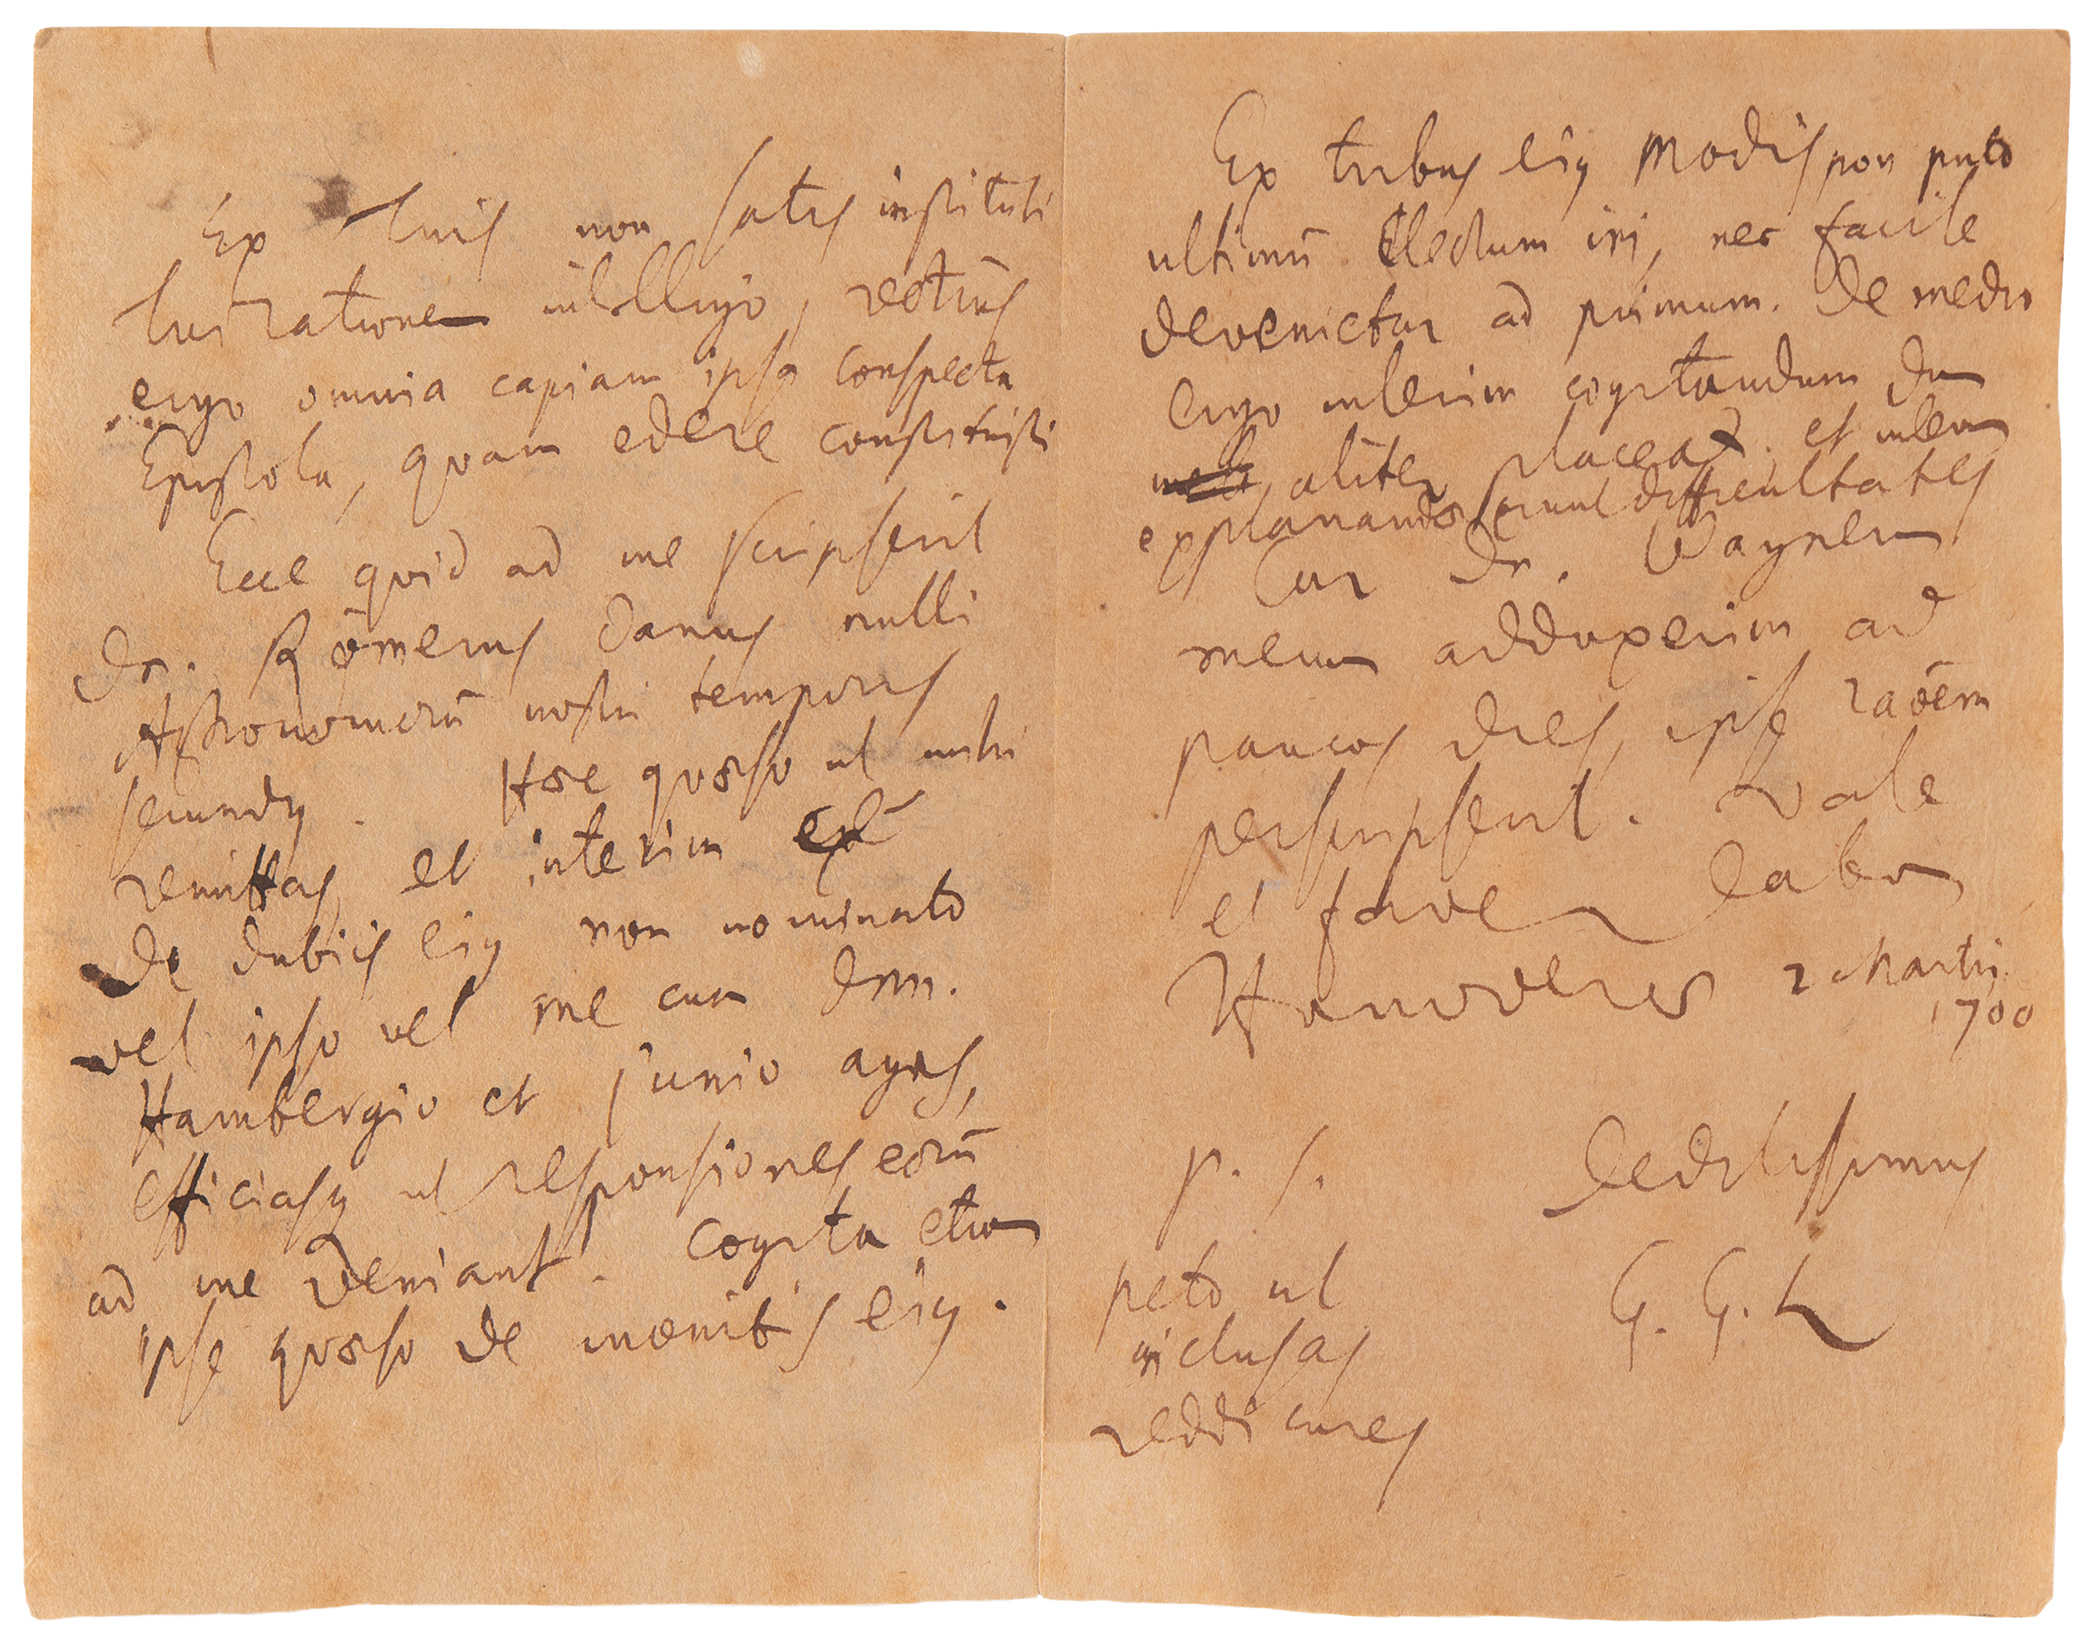 Ex tuis non satis instituti
tui rationem intelligo, rectius
ergo omnia capiam ipsa conspecta
Epistola, quam edere constituisti
Ecce quid ad me scripserit
Dn. Römerus Danus nulli
Astronomorū nostri temporis
secundꝯ. Hæc quæso ut mihi
remittas, et interim
De dubiis eiꝯ non nominato
vel ipso vel me cum Dnn.
Hambergio et Junio agas,
efficiasqꝫ ut responsiones eorū
ad me veniant. Cogita etiam
ipse quæso de monitis eiꝯ.
Ex tribus eiꝯ modis non puto
ultimū Electum iri, nec facile
devenietur ad primum. De medio
ergo interim cogitandum dum
aliter placeat. et interim
explanandæ erunt difficultates
Cur Dn. Wagnerum
mecum adduxerim ad
paucos dies, ipse raõem
perscripserit. Vale
et fave. Dabam
Hanoveræ 2 Martii
1700
P. S. Deditissimus
peto ut G. G. L
inclusas
reddi cures